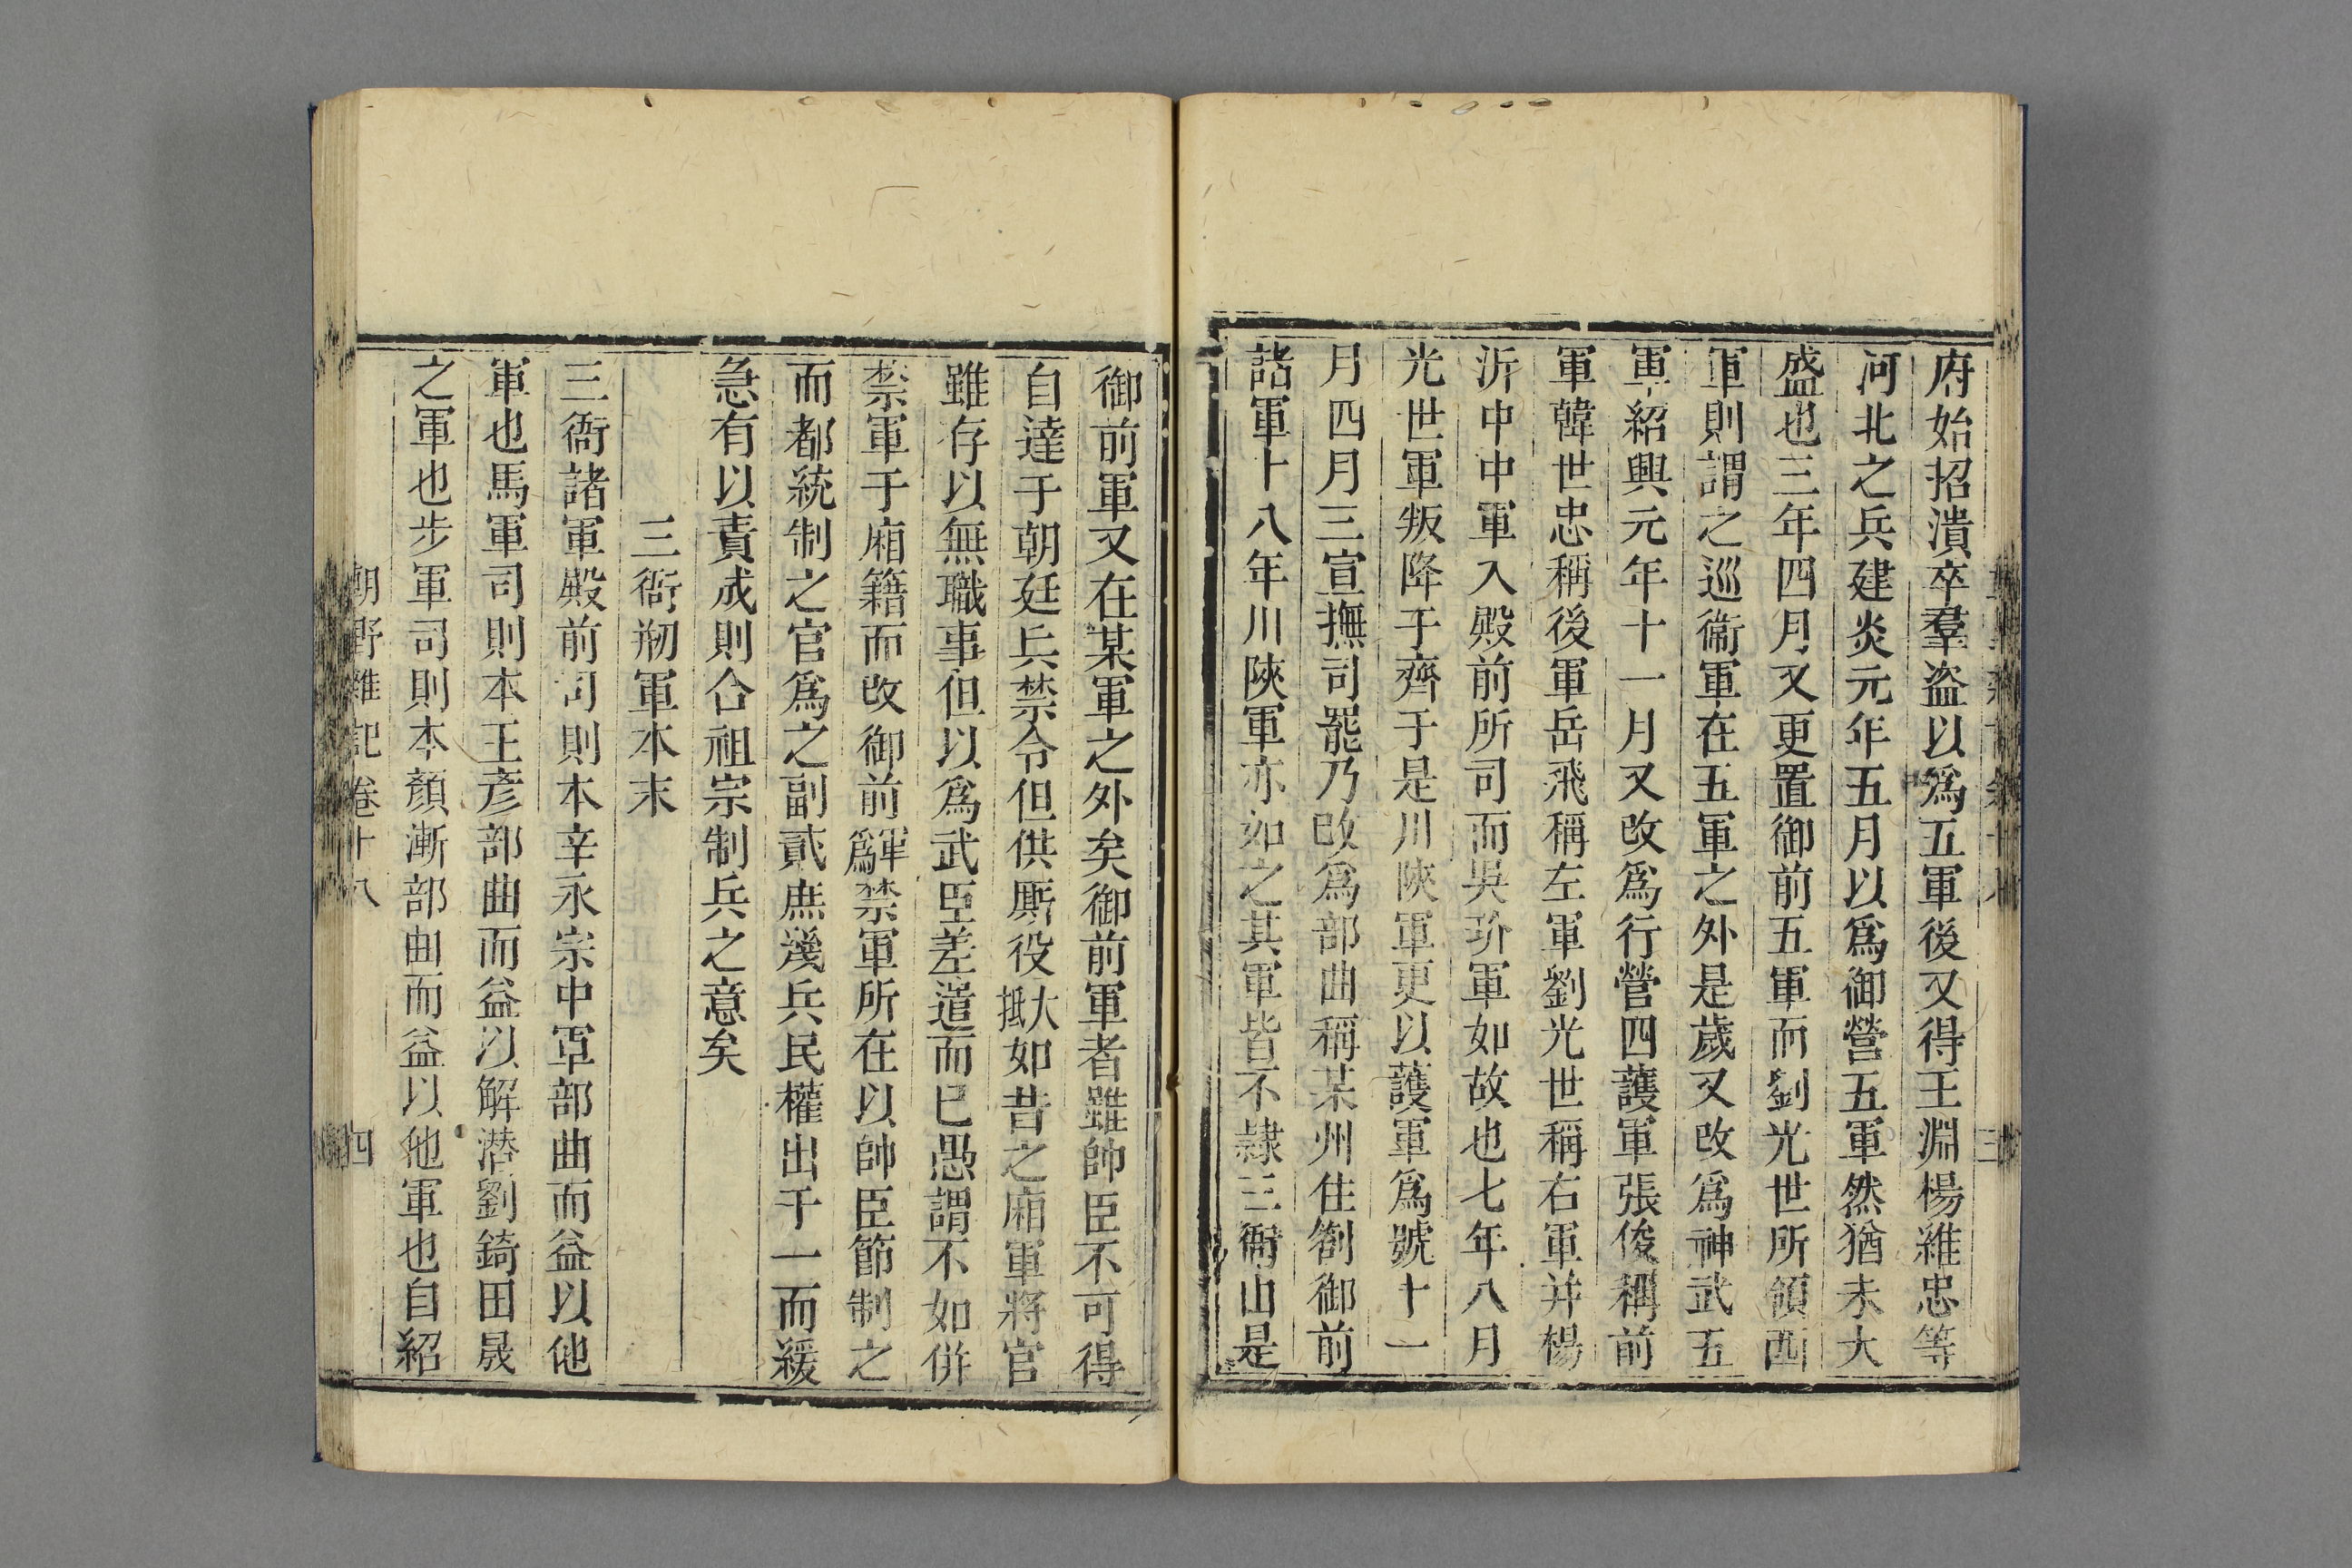 府始招潰卒羣盗以爲五軍後又得王淵楊維忠等
河北之兵建炎元年五月以爲御營五軍然猶未大
盛也三年四月又更置御前五軍而劉光世所領西
軍則謂之巡衞軍在五軍之外是歲又改爲神武五
軍紹興元年十一月又改爲行營四護軍張俊稱前
軍韓世忠稱後軍岳飛稱左軍劉光世稱右軍并楊
沂中中軍入殿前所司而吳玠軍如故也七年八月
光世軍叛降于齊于是川陝軍更以護軍爲號十一
月四月三宣撫司罷乃改爲部曲稱某州住劄御前
諸軍十八年川陝軍亦如之其軍皆不隸三衙由是
御前軍又在某軍之外矣御前軍者雖帥臣不可得
自達于朝廷兵禁令但供厮役大抵如昔之廂軍將官
雖存以無職事但以爲武臣差遣而已愚謂不如併
禁軍于廂籍而改御前軍爲禁軍所在以帥臣節制之
而都統制之官爲之副貳庶幾兵民權出于一而緩
急有以責成則合祖宗制兵之意矣
三衙剏軍本末
三衙諸軍殿前司則本辛永宗中軍部曲而益以他
軍也馬軍司則本王彦部曲而益以解潜劉錡田晟
之軍也步軍司則本顏漸部曲而益以他軍也自紹
朝野雜記卷十八
四